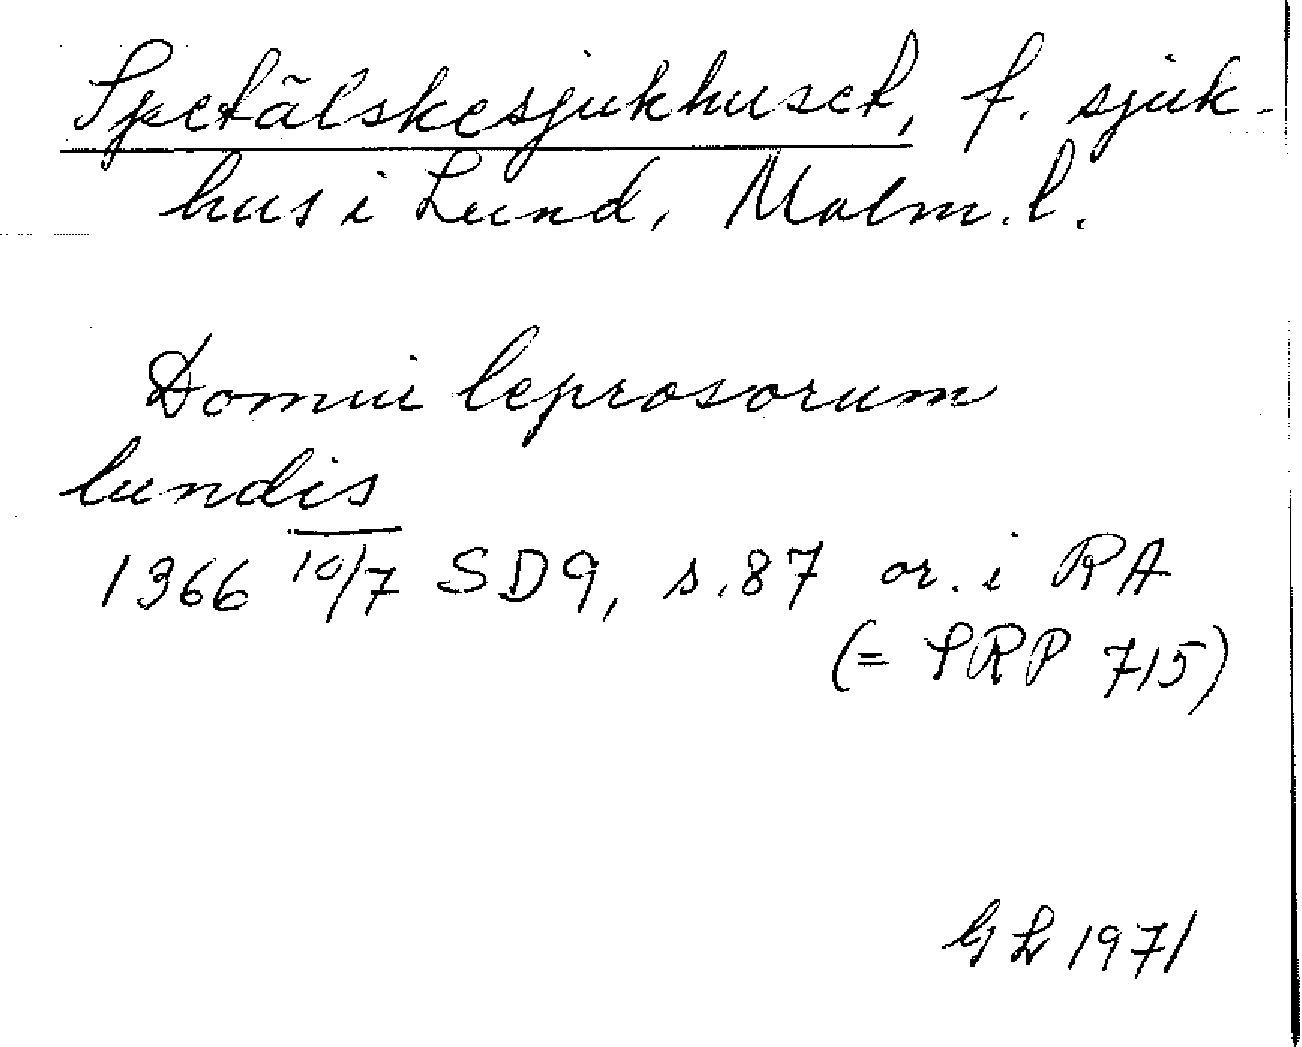 Spetälskesjukhuset, f. sjuk-
hus i Lund, Malm. l.
Domui leprosorum
lundis
1366 10/7 SD9, s. 87 or. i RA
(= SRP 715)
GL 1971